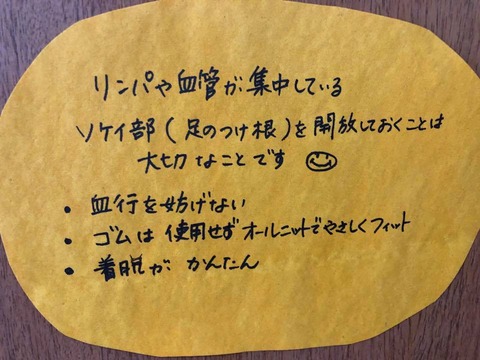 リンパや血管が集中している
ソケイ部(足のつけ根)を開放しておくことは
大切なことです
・血行を妨げない
・ゴムは使用せずオールニットでやさしくフィット
・着脱がかんたん